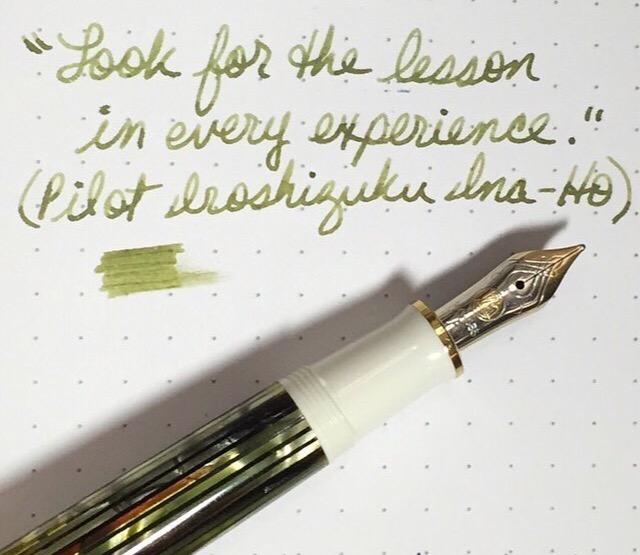 "Look for the lesson
in every experience."
(Pilot Iroshizuku Ina-Ho)